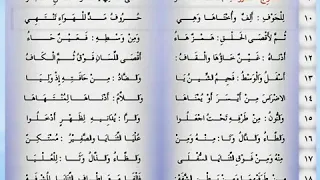 ١٠ لِلْجَوْفِ : أَلِفٌ وَأُخْتَاهَا وَهِي حُرُوفُ مَدٍّ لِلْهَوَاءِ تَنْتَهِي
١١ ثُمَّ لِأَقْصَى الْحَلْقِ : هَمْزٌ هَاءُ وَمِنْ وَسْطِهِ : فَعَيْنٌ حَاءُ
١٢ أَدْنَاهُ : غَيْنٌ خَاؤُهَا وَالْقَافُ : أَقْصَى اللِّسَانِ فَوْقُ ثُمَّ الْكَافُ
١٣ أَسْفَلُ وَالْوَسْطُ : فَجِيمُ الشِّينُ يَا وَالضَّادُ : مِنْ حَافَتِهِ إِذْ وَلِيَا
١٤ الاَضْرَاسَ مِنْ أَيْسَرَ أَوْ يُمْنَاهَا وَاللاَّمُ : أَدْنَاهَا لِمُنْتَهَاهَا
١٥ وَالنُّونُ : مِنْ طَرَفِهِ تَحْتُ اجْعَلُوا وَالرَّا : يُدَانِيهِ لِظَهْرٍ أَدْخَلُوا
١٦ وَالطَّاءُ وَالدَّالُ وَتَا : مِنْهُ وَمِنْ عُلْيَا الثَّنَايَا والصَّفِيرُ : مُسْتَكِنْ
١٧ مِنْهُ وَمِنْ فَوْقِ الثَّنَايَا السُّفْلَى وَالظَّاءُ وَالذَّالُ وَثَا : لِلْعُلْيَا
١٨